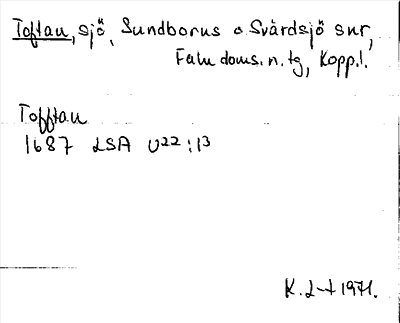 Toftan, sjö, Sundborns o Svärdsjö snr,
Falu doms. n. tg, Kopp.l.
Tofftan
1687 LSA U22:13
K. L-t 1971.